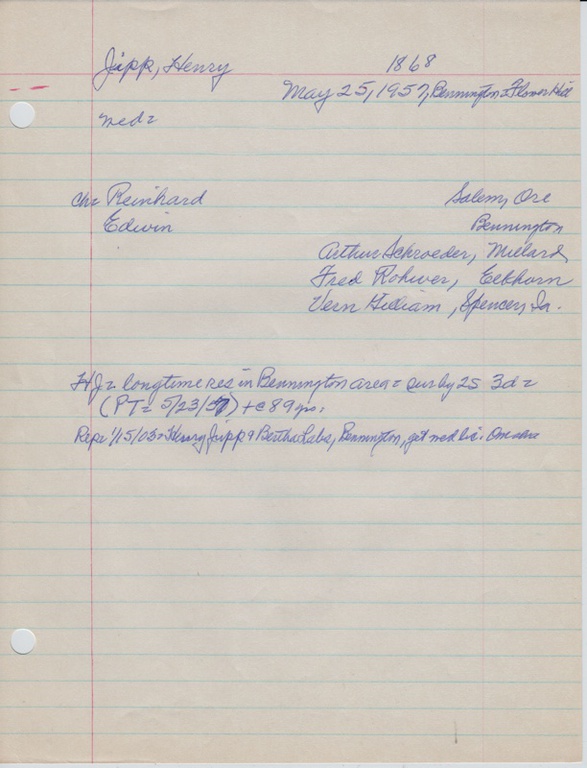 Jipp, Henry 1868
May 25, 1957, Bennington = Flower Hill
med =
ch = Reinhard Salem, Ore
Edwin Bennington
Arthur Schroeder, Millard
Fred Rohwer, Elkhorn
Vern Gilliam, Spencer, Ia.
HJ = longtime res in Bennington area = sur by 2S 3d =
(PT = 5/23/57) + @ 89 yrs:
Rep = 1/15/03 = Henry Jipp & Bertha Labs, Bennington, get med lic. Omaha